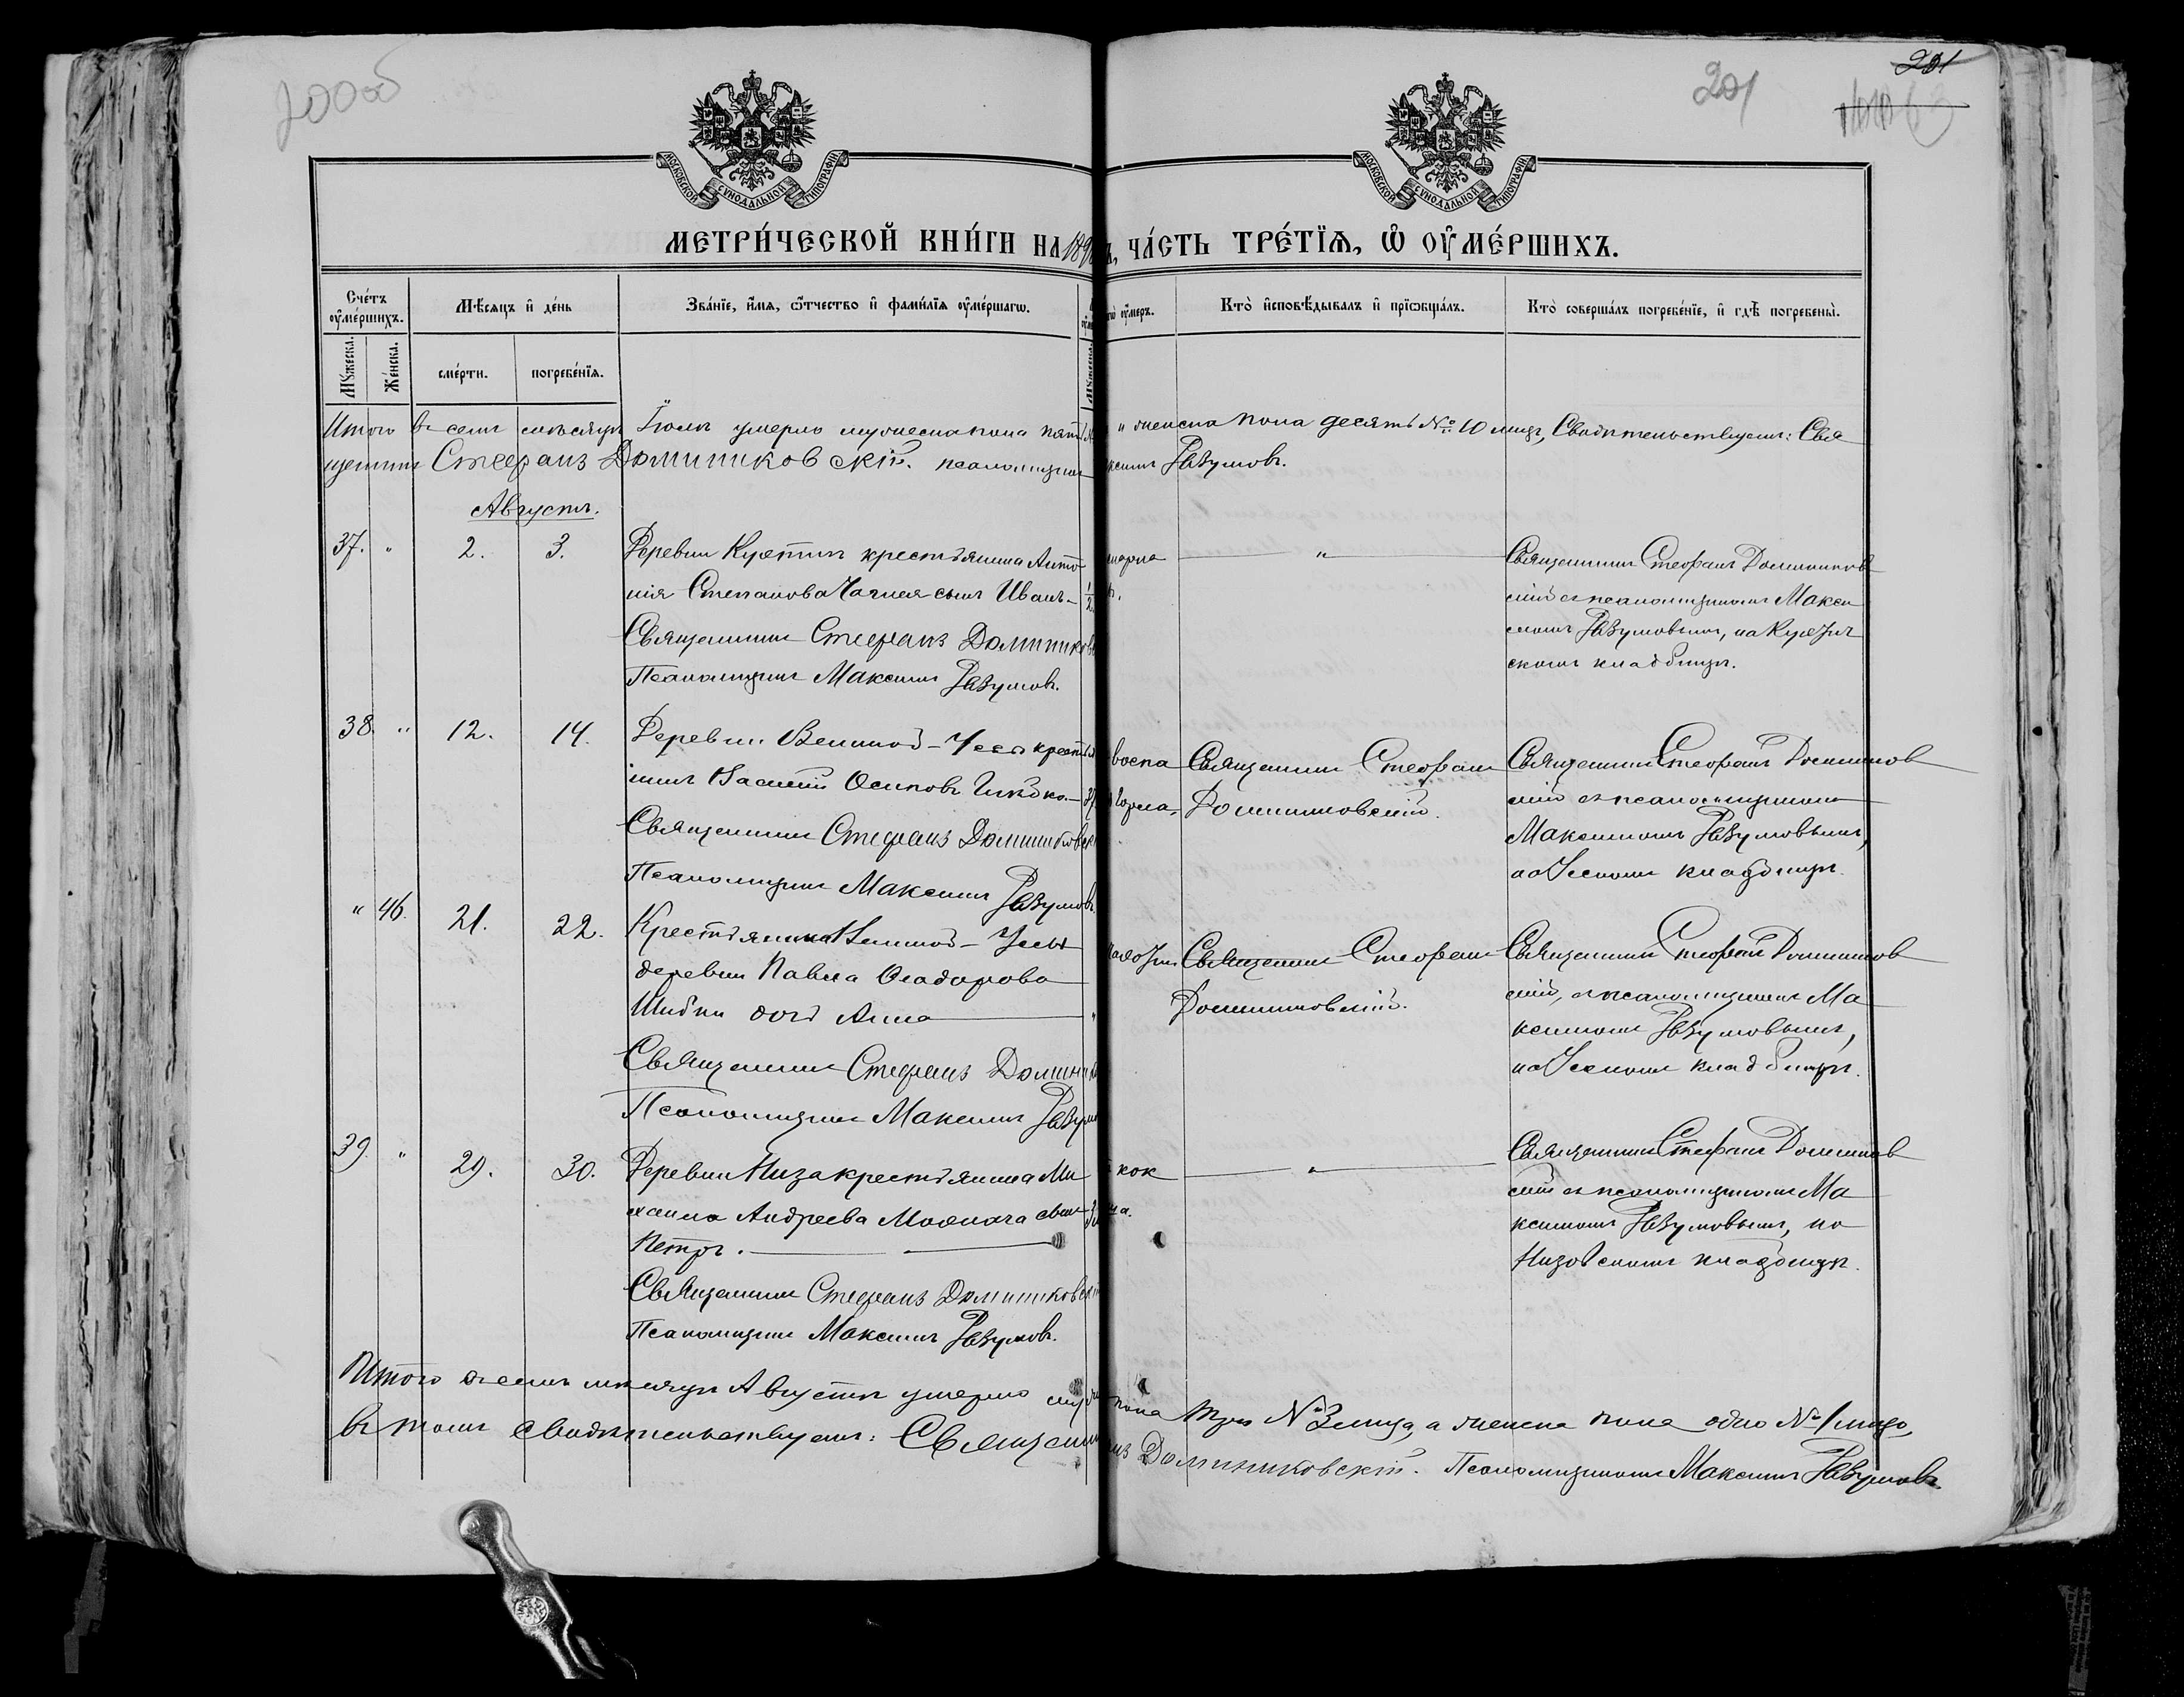 200об
201
201
МОСКОВСКОЙ СѴНОДАЛЬНОЙ ТИПОГРАФІИ
МОСКОВСКОЙ СѴНОДАЛЬНОЙ ТИПОГРАФІИ
МЕТРИ́ЧЕСКОЙ КНИ́ГИ НА 189 ЧА́СТЬ ТРЕ́ТІѦ, Ѡ҆ ОУ҆МЕ́РШИХЪ.
Сче́тъ оу҆ме́ршихъ.
Мѣ́сяцъ и҆ де́нь
Зва́нїе, и҆́мѧ, ѻ҆́тчество и҆ фами́лїѧ оу҆ме́ршагѡ.
оу҆́меръ.
Кто̀ и҆сповѣ́дывалъ и҆ прїѡбща́лъ.
Кто̀ соверша́лъ погребе́нїе, и҆ гдѣ̀ погребены̀.
Мꙋ́жеска.
Же́нска.
сме́рти.
погребе́нїѧ.
Итого въ семъ мѣсяцѣ Іюлѣ умерло мужеска пола пять " женска пола десять № 10 лицъ, Свидѣтельствуемъ: Свя
щенникъ Стефанъ Доминиковскій. псаломщикъ Максимъ Разумовъ.
Августъ.
37. " 2. 3. Деревни крестьянина Анто
нія Степанова сынъ Иванъ
Священникъ Стефанъ Доминиковс
Псаломщикъ Максимъ Разумовъ.
"
Священникъ Стефанъ Домиников
скій съ псаломщикомъ Макси
момъ Разумовымъ, на
скомъ кладбищѣ.
38. " 12. 14. Деревни Великой-Усы крестья
нинъ Василій Осиповъ
Священникъ Стефанъ Доминиковск
Псаломщикъ Максимъ Разумовъ.
Священникъ Стефанъ
Доминиковскій.
Священникъ Стефанъ Домиников
скій съ псаломщикомъ
Максимомъ Разумовымъ,
на Усскомъ кладбищѣ.
" 46. 21. 22. Крестьянина Великой-Усы
деревни Павла Ѳеодорова
Шибки дочь Анна
Священникъ Стефанъ Доминик
Псаломщикъ Максимъ Разумо
Священникъ Стефанъ
Доминиковскій.
Священникъ Стефанъ Домиников
скій, съ псаломщикомъ Ма
ксимомъ Разумовымъ,
на Усскомъ кладбищѣ.
39. " 29. 30. Деревни Низа крестьянина Ми
хаила Андреева сынъ
Петръ.
Священникъ Стефанъ Доминиковскій
Псаломщикъ Максимъ Разумовъ.
"
Священникъ Стефанъ Домиников
скій съ псаломщикомъ Ма
ксимомъ Разумовымъ, на
Низовскомъ кладбищѣ.
Итого въ семъ мѣсяцѣ Августѣ умерло пола три № 3 лица, а женска пола одно № 1 лицо,
въ томъ свидѣтельствуемъ: Священни Доминиковскій. Псаломщикомъ Максимъ Разумовъ